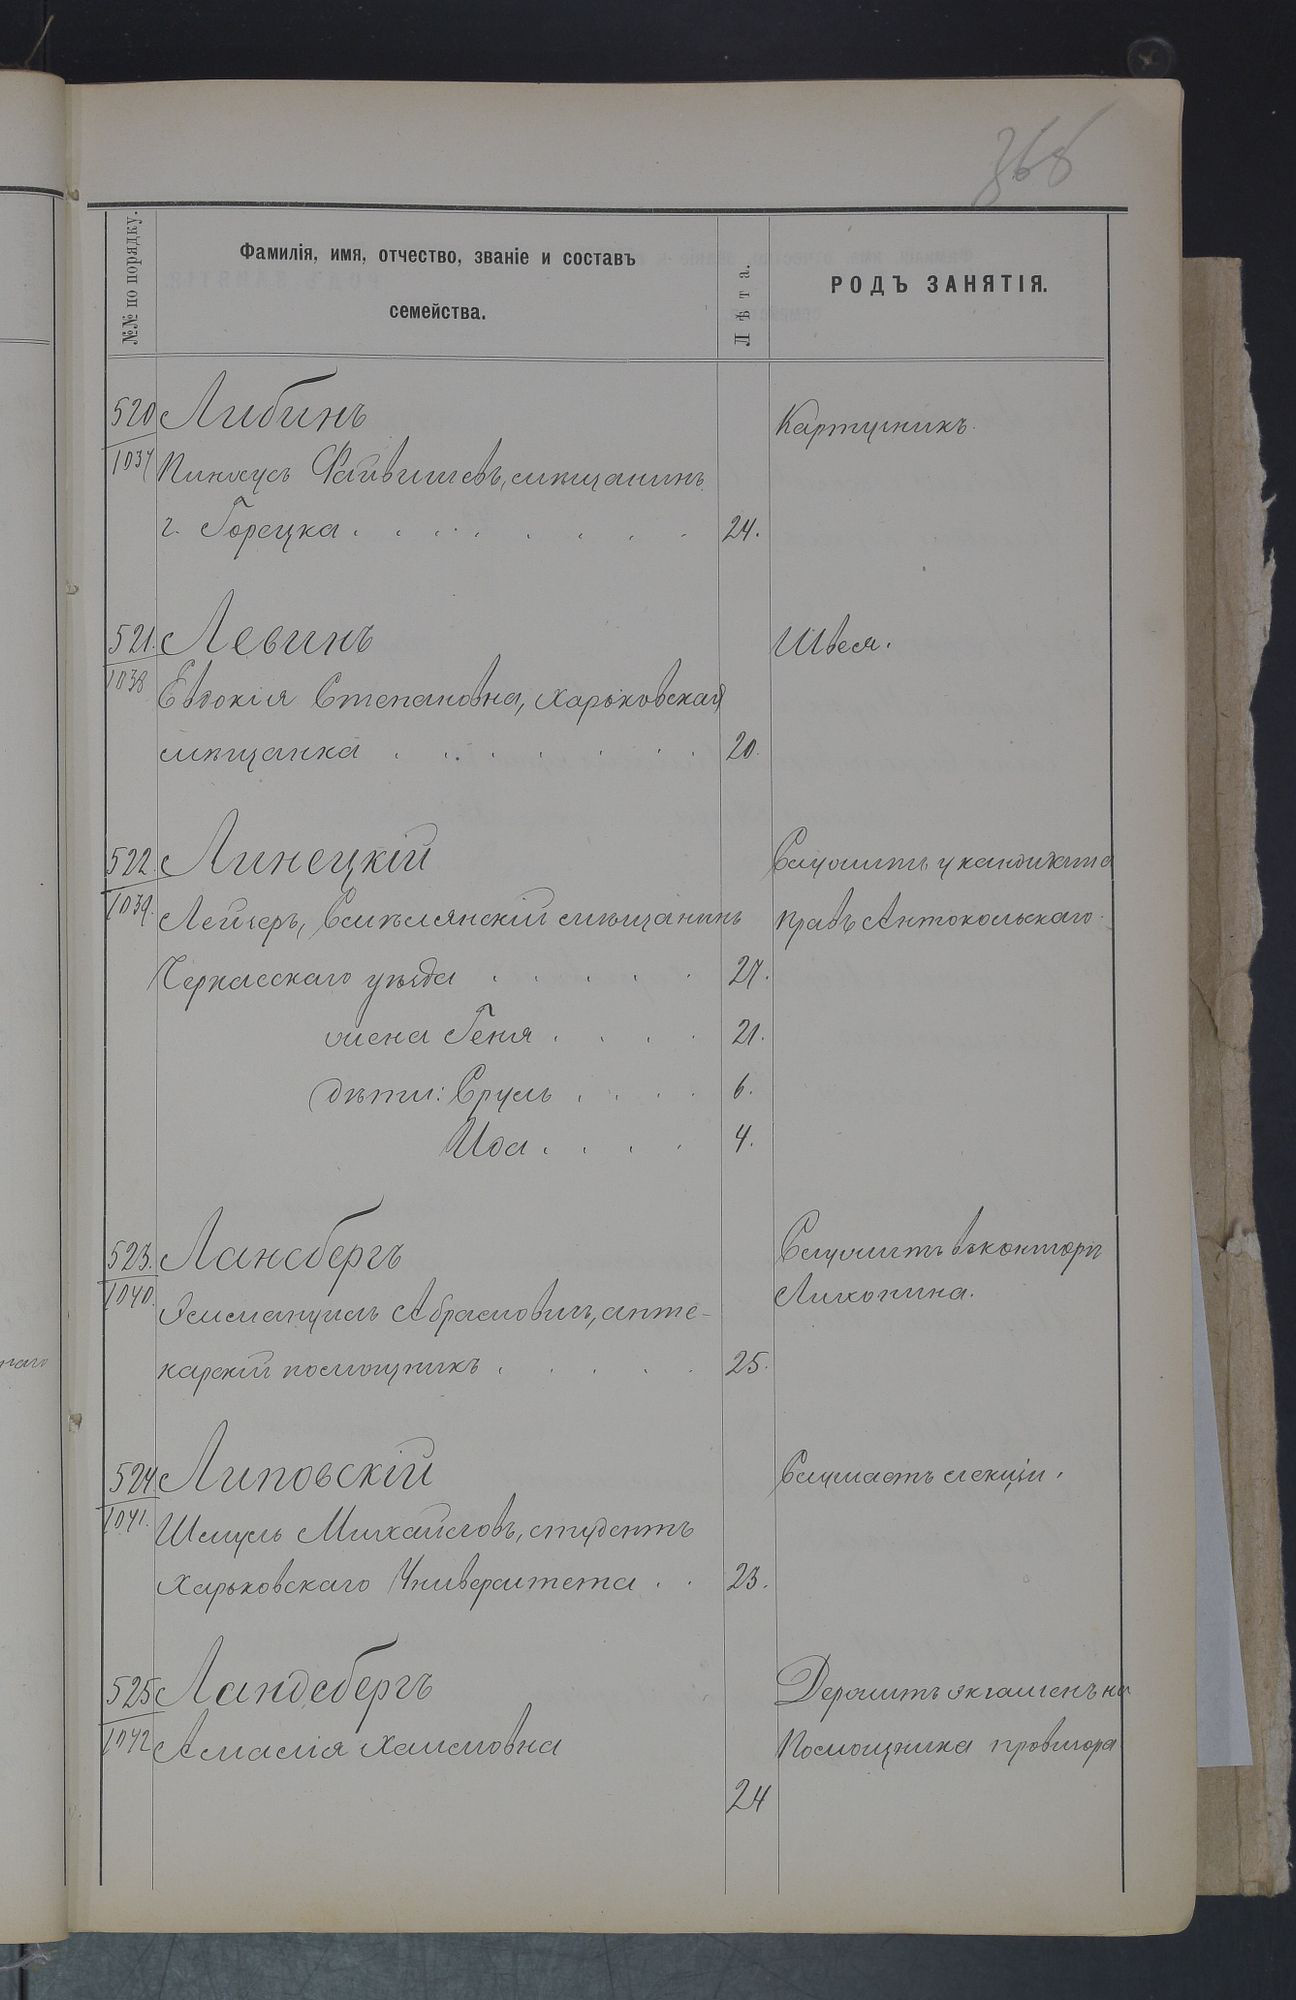 368
№№ по порядку.
Фамилія, имя, отчество, званіе и составъ
семейства.
Лѣта.
РОДЪ ЗАНЯТІЯ.
520 Либинъ Картузникъ.
1037 Пинхусъ Файвишевъ, мѣщанинъ
г. Горецка . . . . . . . . 24.
521. Левинъ Швея.
1038 Евдокія Степановна, Харьковская
мѣщанка . . . . . . . 20.
522. Линецкій Служитъ у кандидата
1039. Лейзеръ, Смѣлянскій мѣщанинъ правъ Антокольскаго.
Черкасскаго уѣзда . . . . . 27.
жена Геня . . . . 21.
дѣти: Сруль . . . . 6.
Іоа . . . . 4.
523. Лансбергъ Служитъ въ конторѣ
1040. Эммануилъ Абрамовичъ, апте- Лихонина.
карскій помощникъ . . . . . 25.
524 Липовскій Слушаетъ лекціи.
1041. Шмуль Михайловъ, студентъ
Харьковскаго Университета . . 23.
525. Ландсбергъ Держитъ экзаменъ на
1042 Амалія Хаимовна Помощника провизора
24
наго